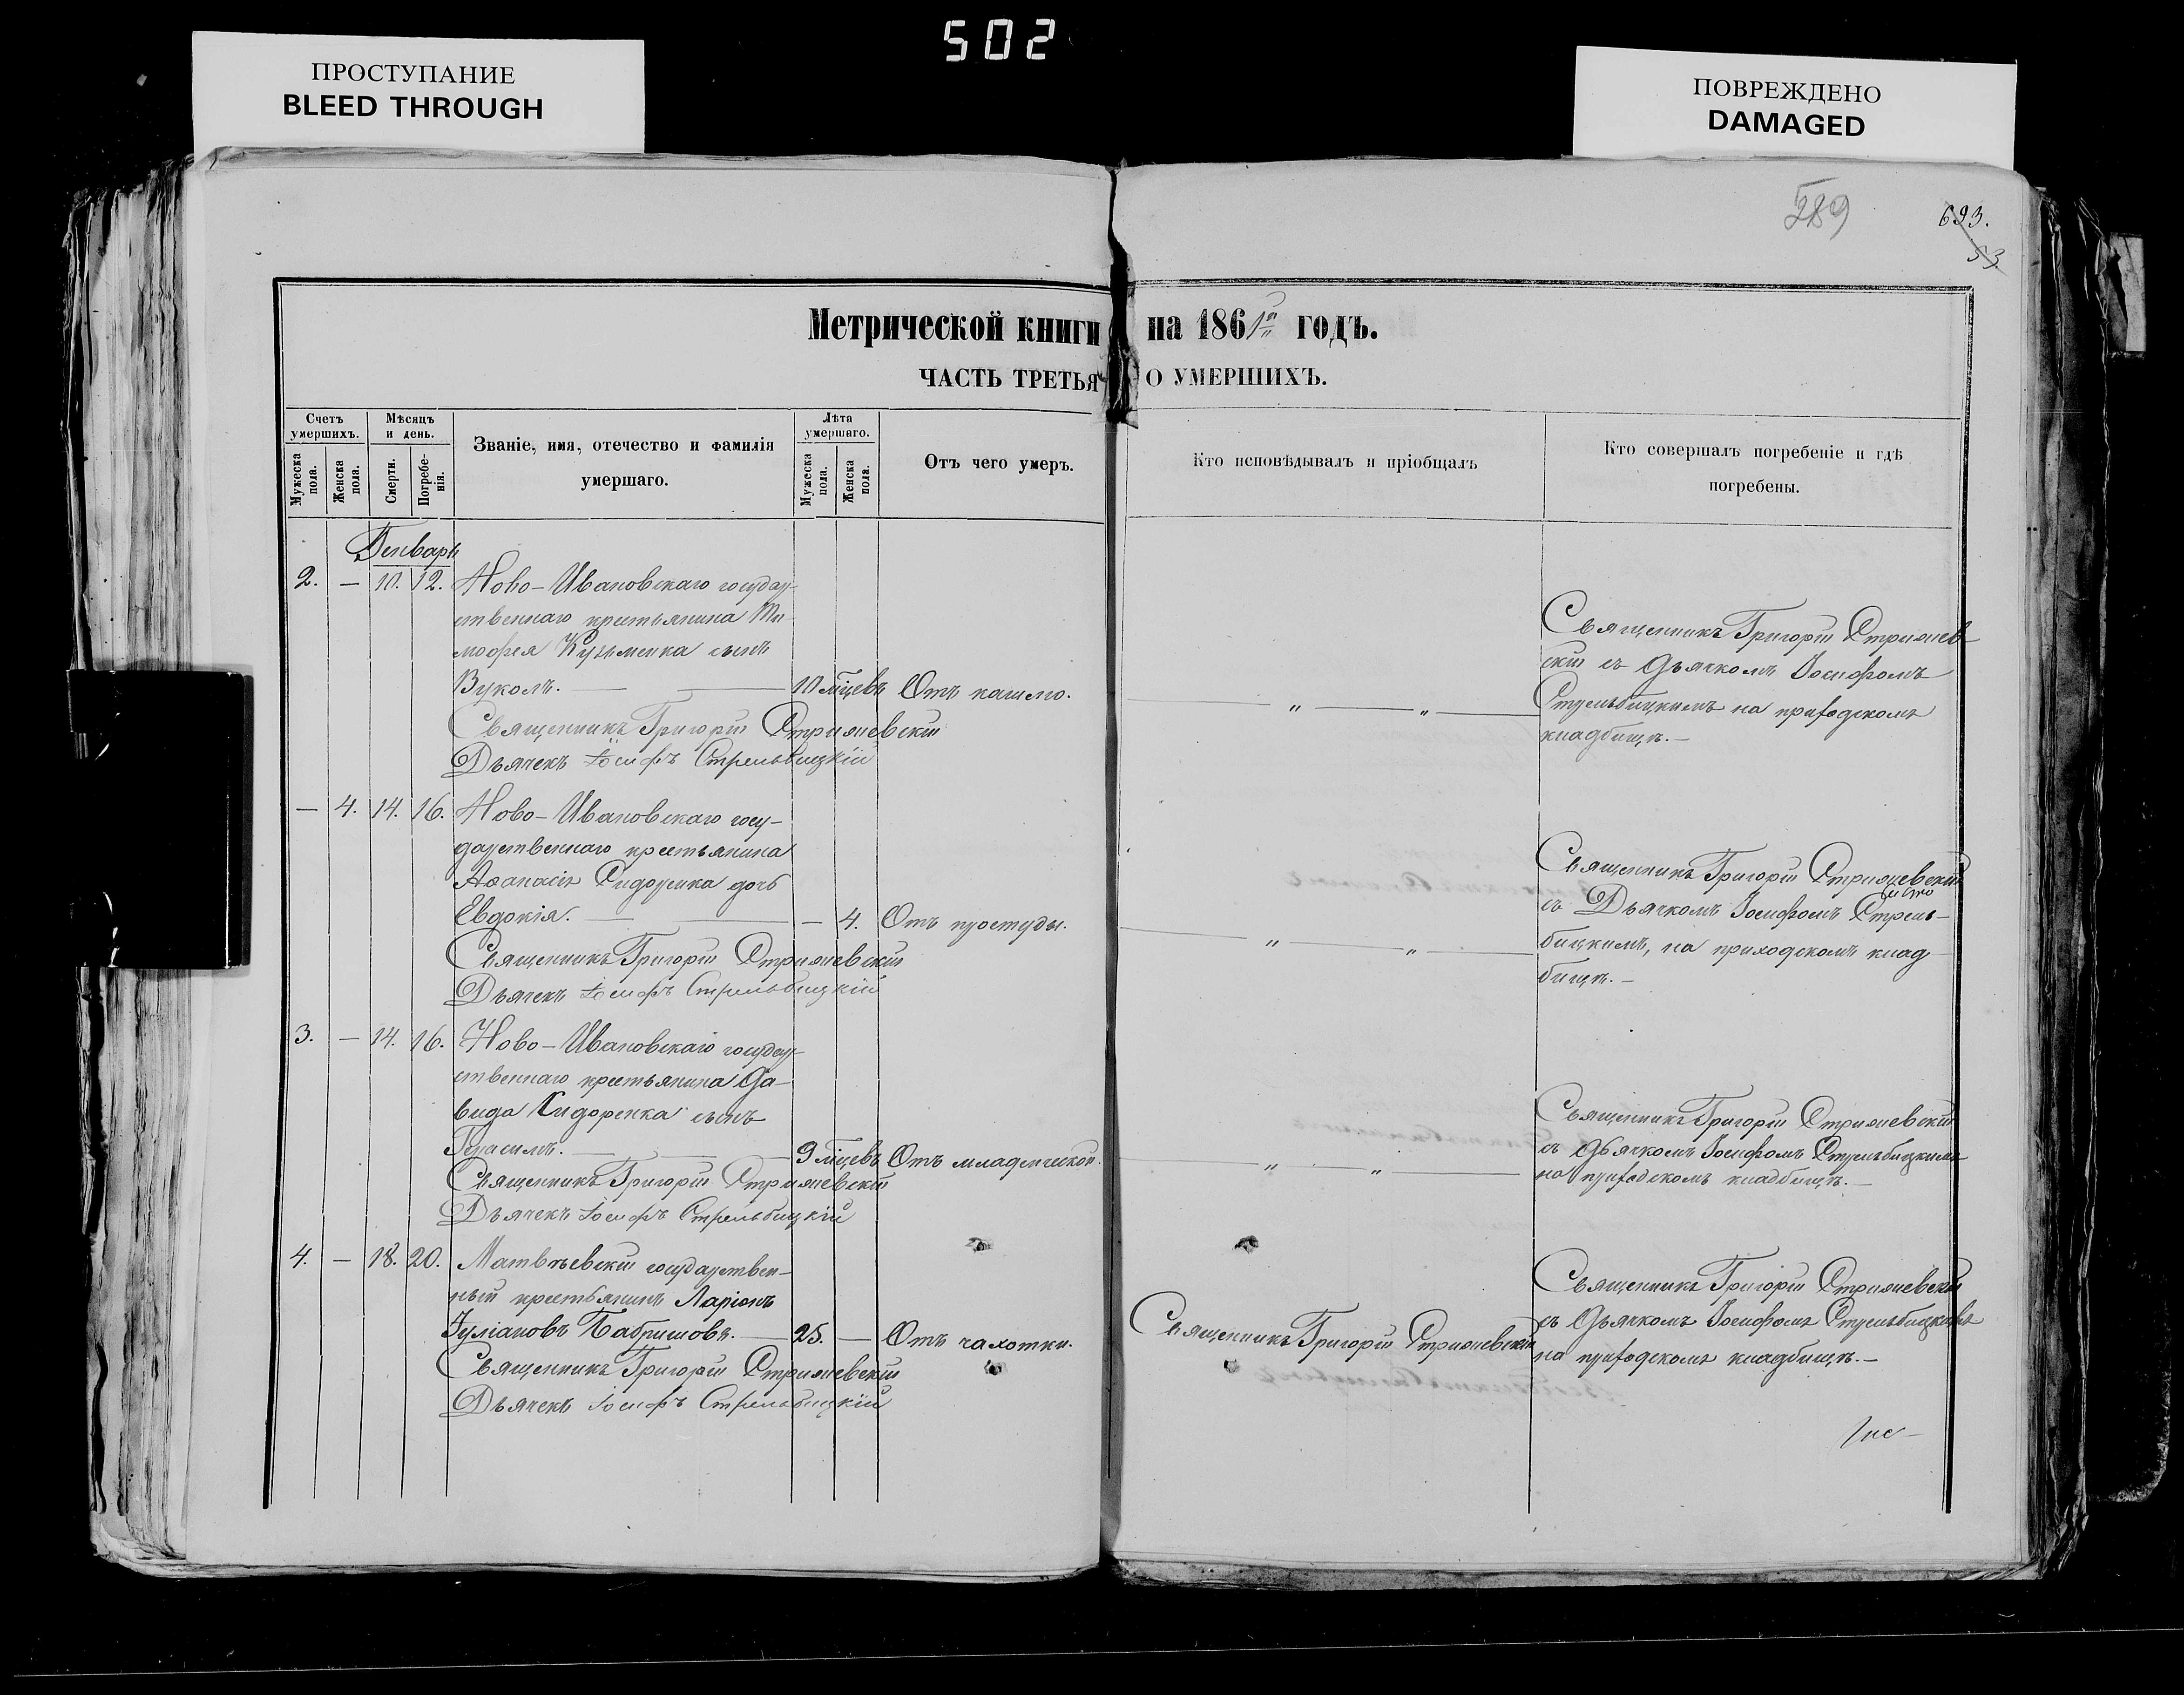 502
ПРОСТУПАНИЕ
BLEED THROUGH
ПОВРЕЖДЕНО
DAMAGED
289
623.
53
Метрической книги на 1861го годъ.
ЧАСТЬ ТРЕТЬЯ О УМЕРШИХЪ.
Счетъ умершихъ.
Мѣсяцъ и день.
Званіе, имя, отечество и фамилія умершаго.
Лѣта умершаго.
Отъ чего умеръ.
Кто исповѣдывалъ и пріобщалъ
Кто совершалъ погребеніе и гдѣ погребены.
Мужеска пола.
Женска пола.
Смерти.
Погребенія.
Мужеска пола.
Женска пола.
Генварь
2. — 10. 12. Ново-Ивановскаго государ-
ственнаго крестьянина Ти-
мофея Кузьменка сынъ
Вуколъ. — — 10 мцевъ Отъ кашлю.
Священникъ Григорій
Дьячекъ Іосифъ Стрельбицкій
— " — " —
Священникъ Григорій
съ Дьячкомъ Іосифомъ
Стрельбицкимъ на приходскомъ
кладбищѣ. —
— 4. 14. 16. Ново-Ивановскаго госу-
дарственнаго крестьянина
Аѳанасія Сидоренка дочь
Евдокія. — — — 4. Отъ простуды.
Священникъ Григорій
Дьячекъ Іосифъ Стрельбицкій
— " — " —
Священникъ Григорій
съ Дьячкомъ Іосифомъ Стрель-
бицкимъ, на приходскомъ клад-
бищѣ. —
3. — 14. 16. Ново-Ивановскаго государ-
ственнаго крестьянина Да-
вида Сидоренка сынъ
Герасимъ. — — 9 мцевъ Отъ младенческой.
Священникъ Григорій
Дьячекъ Іосифъ Стрельбицкій
— " — " —
Священникъ Григорій
съ Дьячкомъ Іосифомъ Стрельбицкимъ
на приходскомъ кладбищѣ. —
4. — 18. 20. Матвѣевскій государствен-
ный крестьянинъ Ларіонъ
Іуліановъ — 25. — Отъ чахотки.
Священникъ Григорій
Дьячекъ Іосифъ Стрельбицкій
Священникъ Григорій
Священникъ Григорій
съ Дьячкомъ Іосифомъ Стрельбицкимъ
на приходскомъ кладбищѣ. —